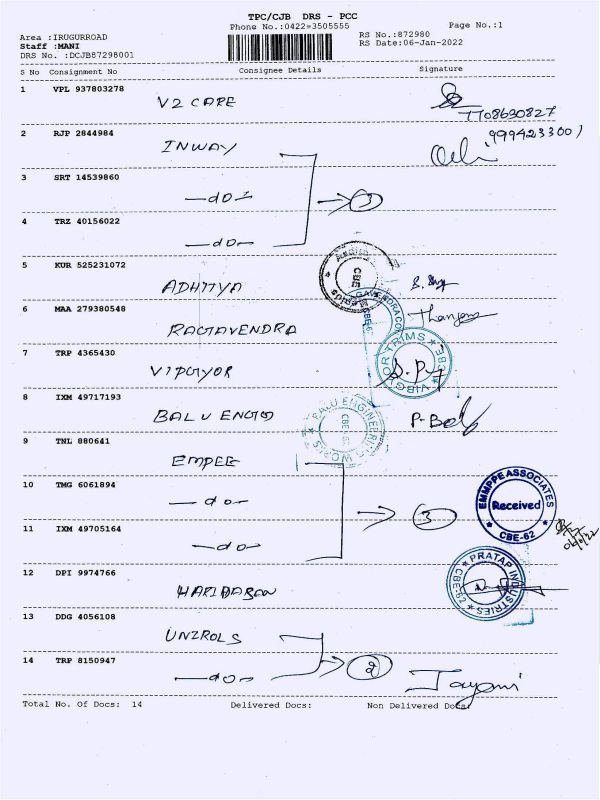 TPC/CJB DRS - PCC
Phone No.:0422=3505555
Page No.:1
Area :IRUGURROAD
RS No.:872980
Staff :MANI
RS Date:06-Jan-2022
DRS No. :DCJB87298001
S No Consignment No Consignee Details Signature
1 VPL 937803278
V2 CARE
7708630827
2 RJP 2844984
9994233001
INWAY
3 SRT 14539860
-do- 3
4 TRZ 40156022
-do-
5 KUR 525231072
ADHITYA
6 MAA 279380548
RAGAVENDRA
7 TRP 4365430
VIBGYOR
VIBGYOR TRIMS CBE
8 IXM 49717193
BALU ENGG
BALU ENGINEERING WORKS CBE-62
9 TNL 880641
EMPEE
10 TMG 6061894
-do-
3
EMMPPE ASSOCIATES
Received
CBE-62
11 IXM 49705164
-do-
12 DPI 9974766
HARIHARAN
PRATAP INDUSTRIES CBE-62
13 DDG 4056108
UNIROLS
14 TRP 8150947
-do- 2
Jayani
Total No. Of Docs: 14 Delivered Docs: Non Delivered Docs: